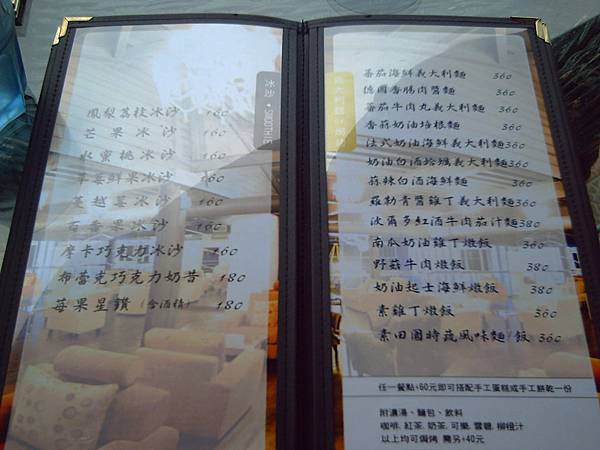 冰沙 • SMOOTHIE
鳳梨荔枝冰沙 160
芒果冰沙 160
水蜜桃冰沙 160
草莓鮮果冰沙 160
蔓越莓冰沙 160
百香果冰沙 160
摩卡巧克力冰沙 160
布蕾克巧克力奶昔 180
莓果星鑽（含酒精） 180
蕃茄海鮮義大利麵 360
德國香腸肉醬麵 360
蕃茄牛肉丸義大利麵 360
香蒜奶油培根麵 360
法式奶油海鮮義大利麵 360
奶油白酒蛤蠣義大利麵 360
蒜辣白酒海鮮麵 360
羅勒青醬雞丁義大利麵 360
波爾多紅酒牛肉茄汁麵 380
南瓜奶油雞丁燉飯 360
野菇牛肉燉飯 380
奶油起士海鮮燉飯 380
素雞丁燉飯 360
素田園時蔬風味麵/飯 360
任一餐點+60元即可搭配手工蛋糕或手工餅乾一份
附濃湯、麵包、飲料
咖啡. 紅茶. 奶茶. 可樂. 雪碧. 柳橙汁
以上均可焗烤 需另+40元